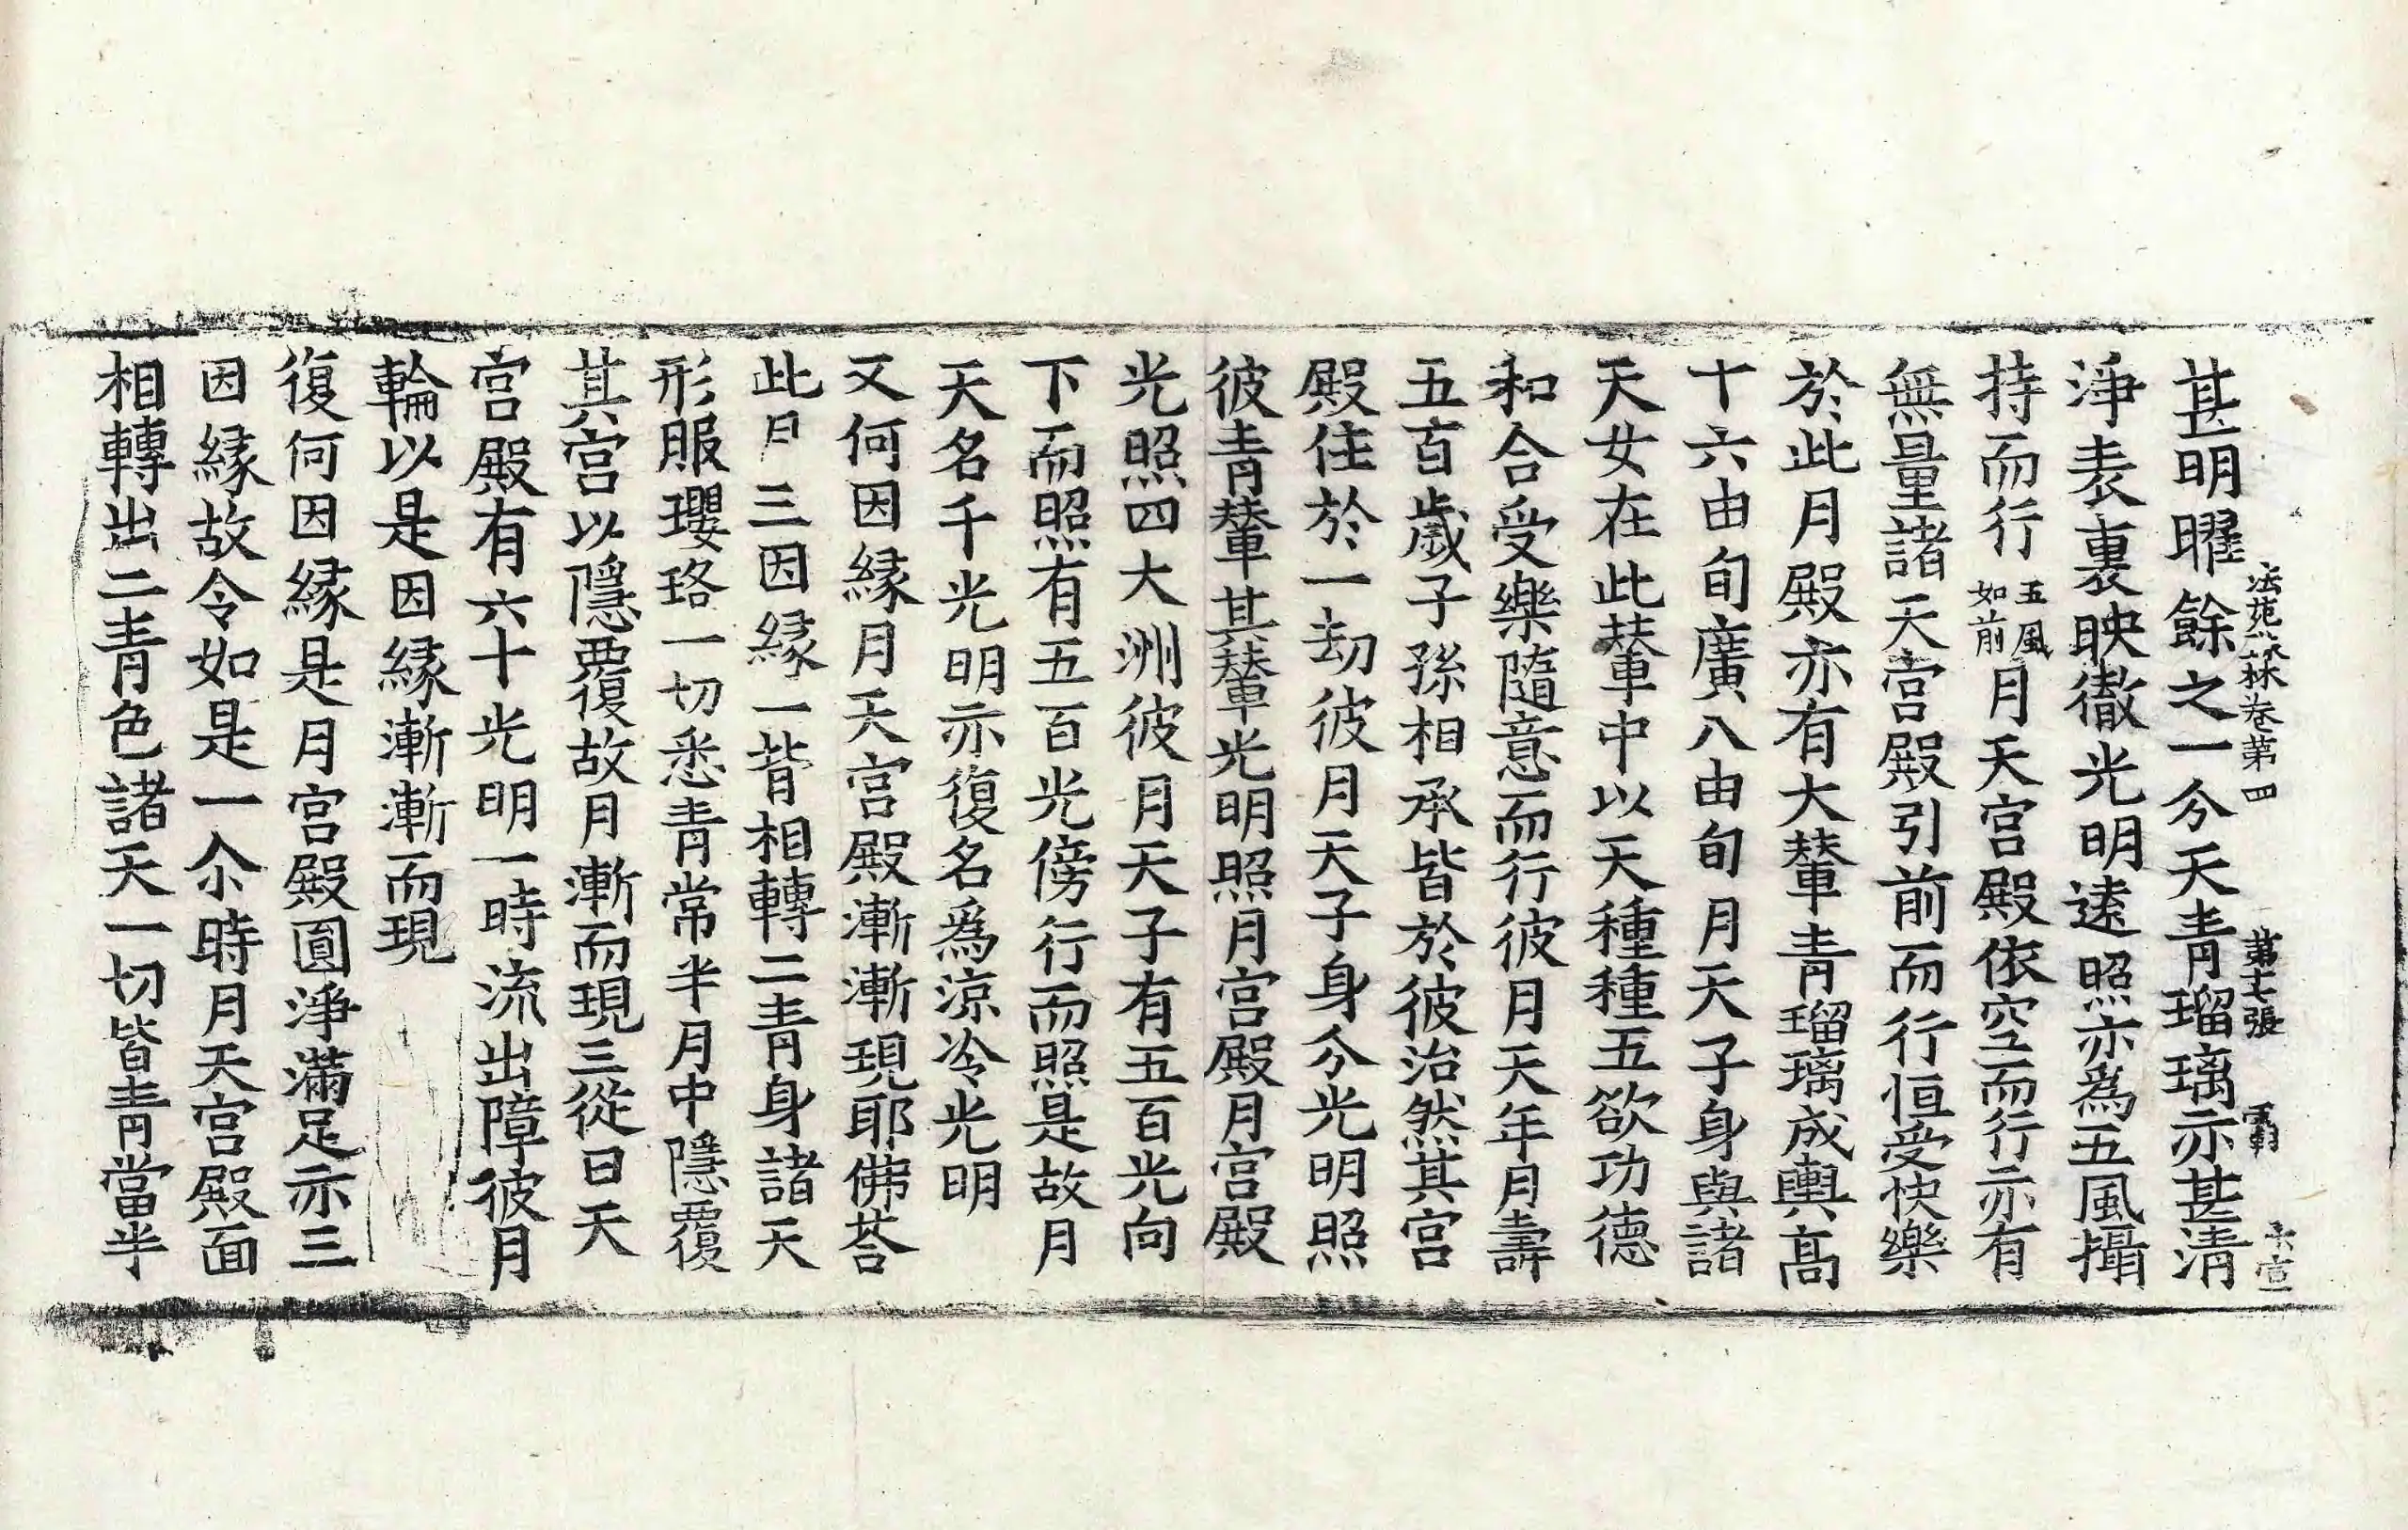 甚明曜餘之一分天青瑠璃亦甚清
法苑珠林卷第四 第七張 六宣
淨表裏映徹光明遠照亦為五風攝
持而行五風如前月天宮殿依空而行亦有
無量諸天宮殿引前而行恒受快樂
於此月殿亦有大輦青瑠璃成輿髙
十六由旬廣八由旬月天子身與諸
天女在此輦中以天種種五欲功德
和合受樂隨意而行彼月天年月壽
五百歲子孫相承皆於彼治然其宮
殿住於一劫彼月天子身分光明照
彼青輦其輦光明照月宮殿月宮殿
光照四大洲彼月天子有五百光向
下而照有五百光傍行而照是故月
天名千光明亦復名為涼冷光明
又何因縁月天宮殿漸漸現耶佛荅
此曰三因縁一背相轉二青身諸天
形服瓔珞一切悉青常半月中隱覆
其宮以隱覆故月漸而現三從日天
宮殿有六十光明一時流出障彼月
輪以是因縁漸漸而現
復何因縁是月宮殿圓淨滿足亦三
因縁故令如是一尒時月天宮殿面
相轉出二青色諸天一切皆青當半